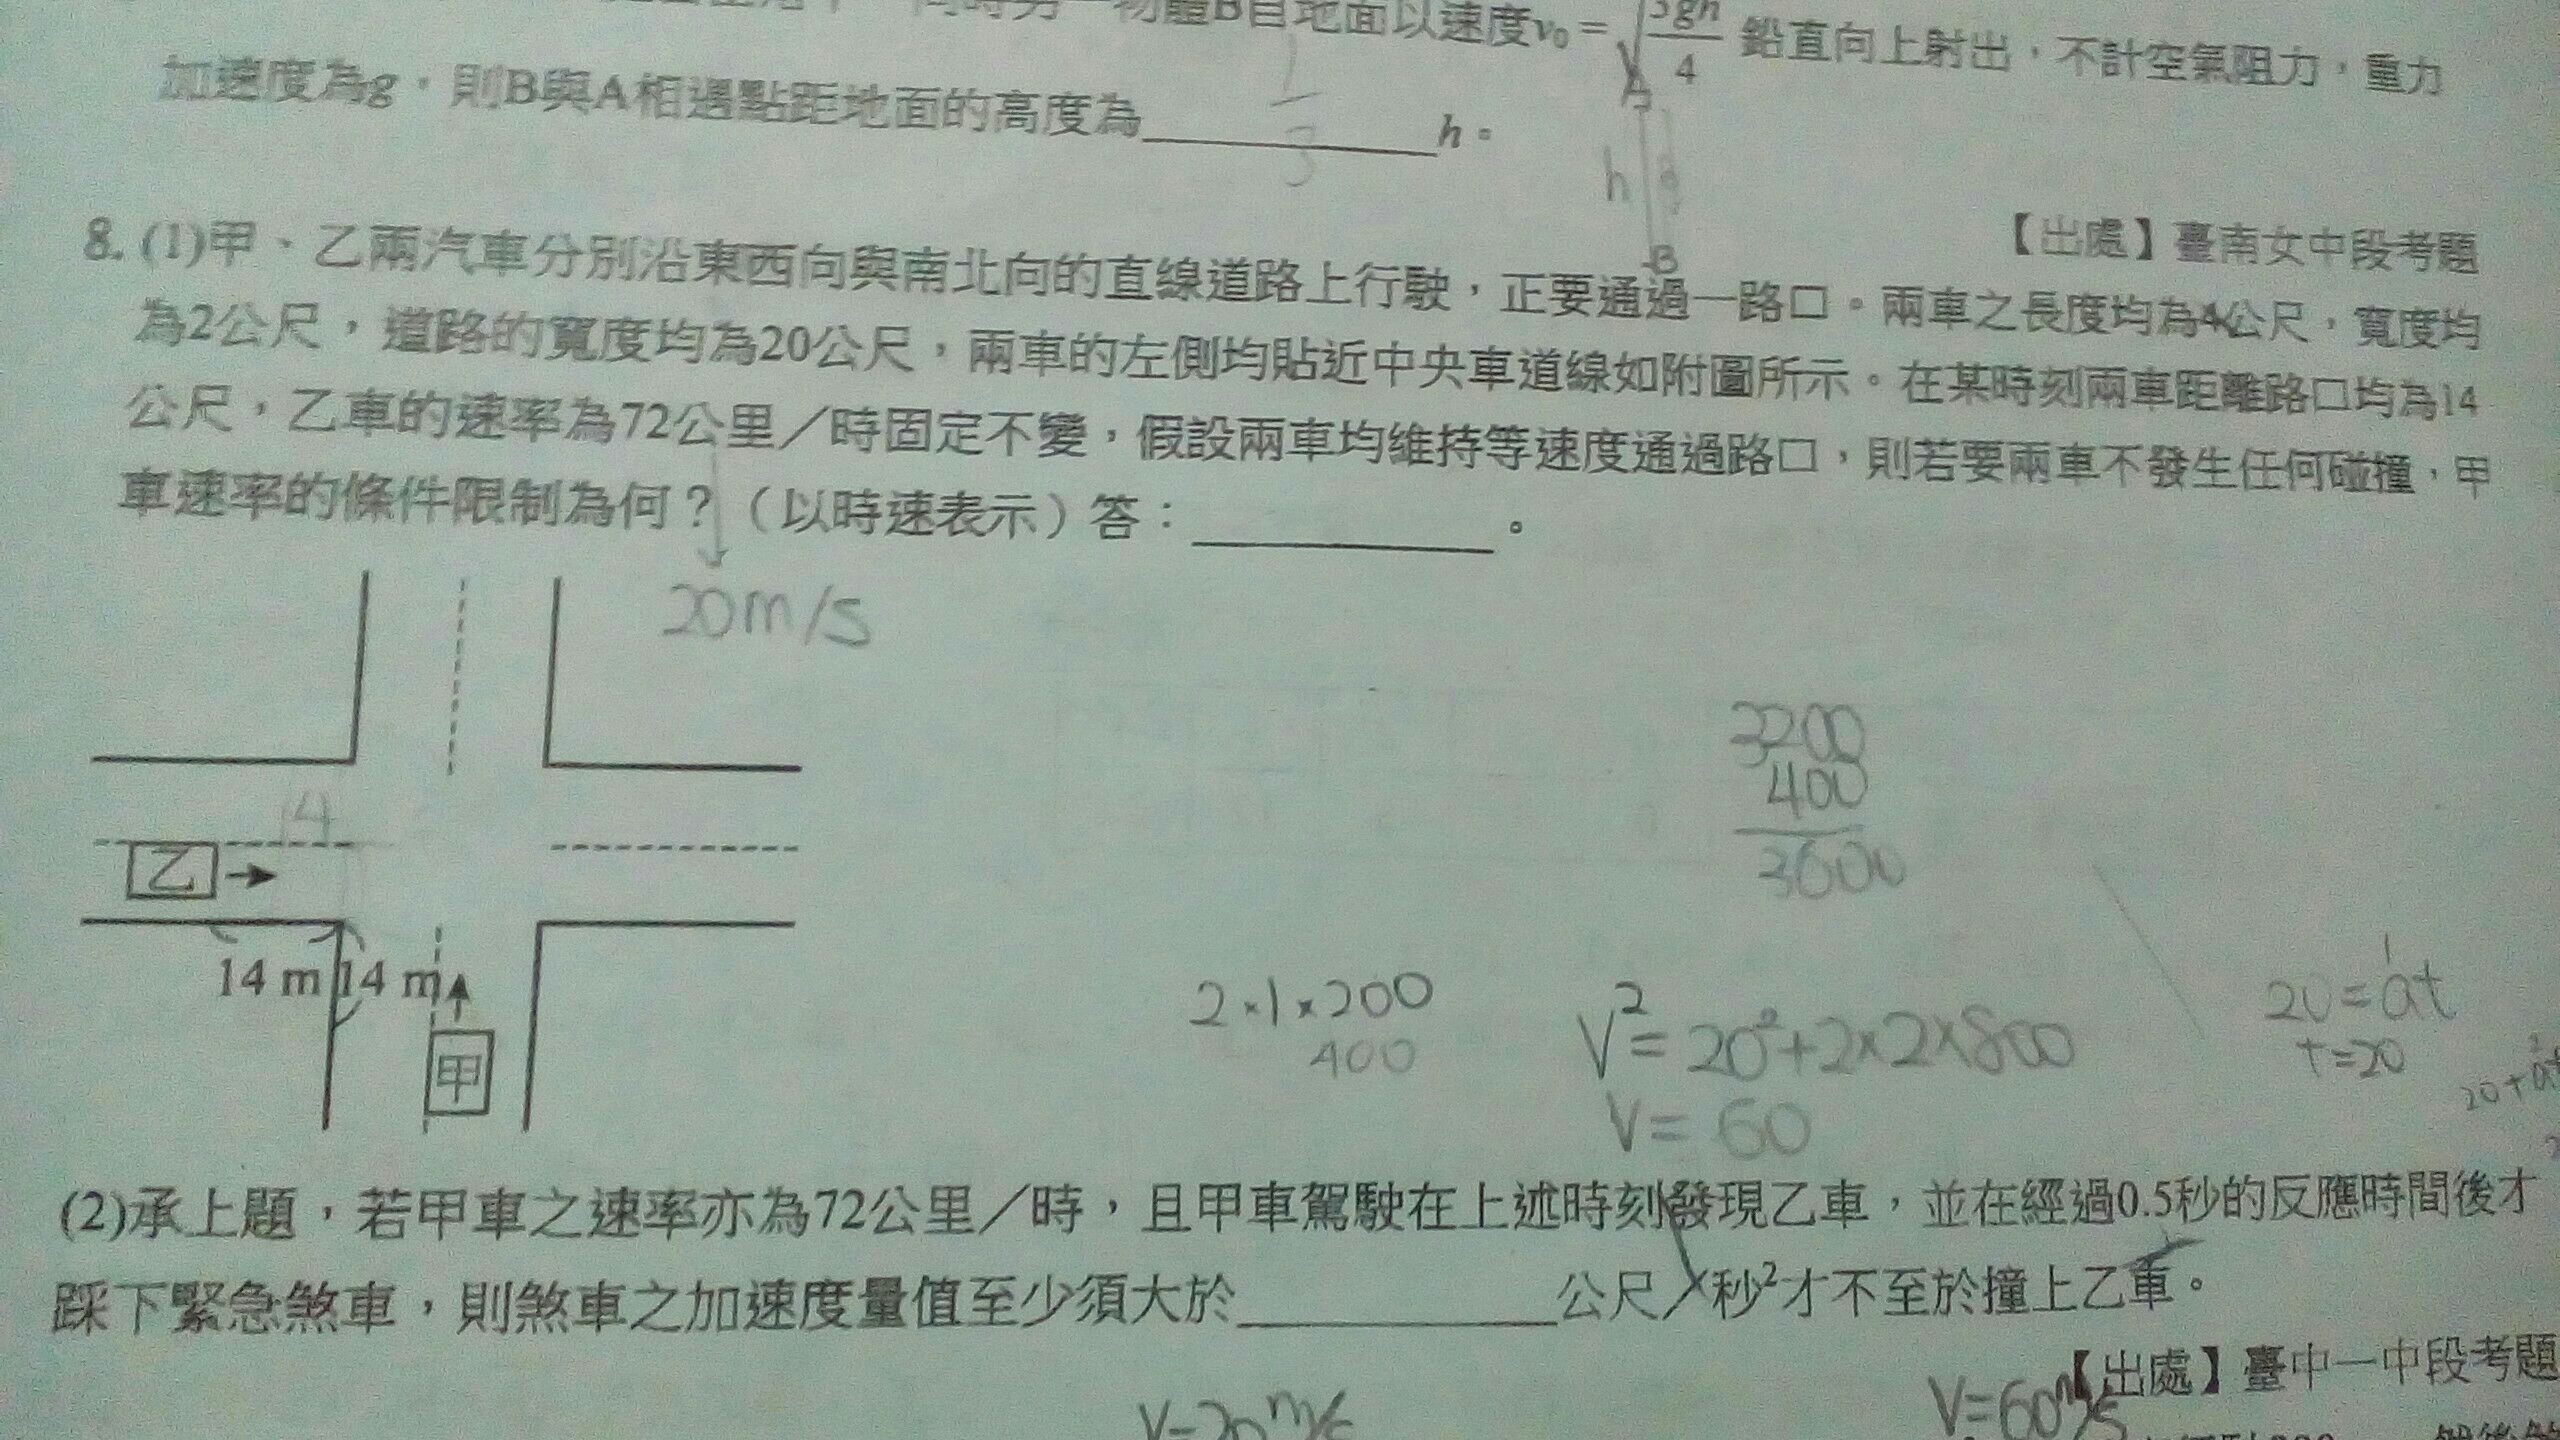 同時另一物體B自地面以速度v₀ = √(5gh/4) 鉛直向上射出，不計空氣阻力，重力
加速度為g，則B與A相遇點距地面的高度為 1/3 h。
A
h
B
【出處】臺南女中段考題
8. (1)甲、乙兩汽車分別沿東西向與南北向的直線道路上行駛，正要通過一路口。兩車之長度均為4公尺，寬度均
為2公尺，道路的寬度均為20公尺，兩車的左側均貼近中央車道線如附圖所示。在某時刻兩車距離路口均為14
公尺，乙車的速率為72公里／時固定不變，假設兩車均維持等速度通過路口，則若要兩車不發生任何碰撞，甲
車速率的條件限制為何？（以時速表示）答：。
20m/s
3200
400
3600
14
乙
14 m 14 m
甲
2×1×200
400
V²=20²+2×2×800
V=60
20=at
t=20
(2)承上題，若甲車之速率亦為72公里／時，且甲車駕駛在上述時刻發現乙車，並在經過0.5秒的反應時間後才
踩下緊急煞車，則煞車之加速度量值至少須大於公尺／秒²才不至於撞上乙車。
【出處】臺中一中段考題
V=20m/s
V=60m/s